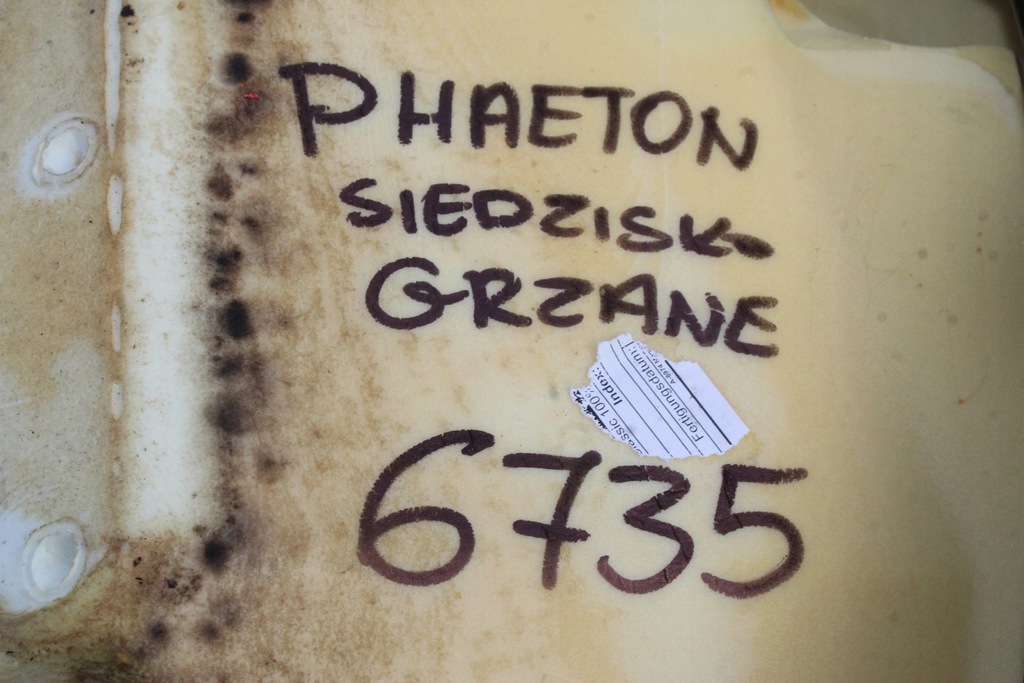 PHAETON
SIEDZISK-
GRZANE
Fertigungsdatum:
Index:
100%
6735